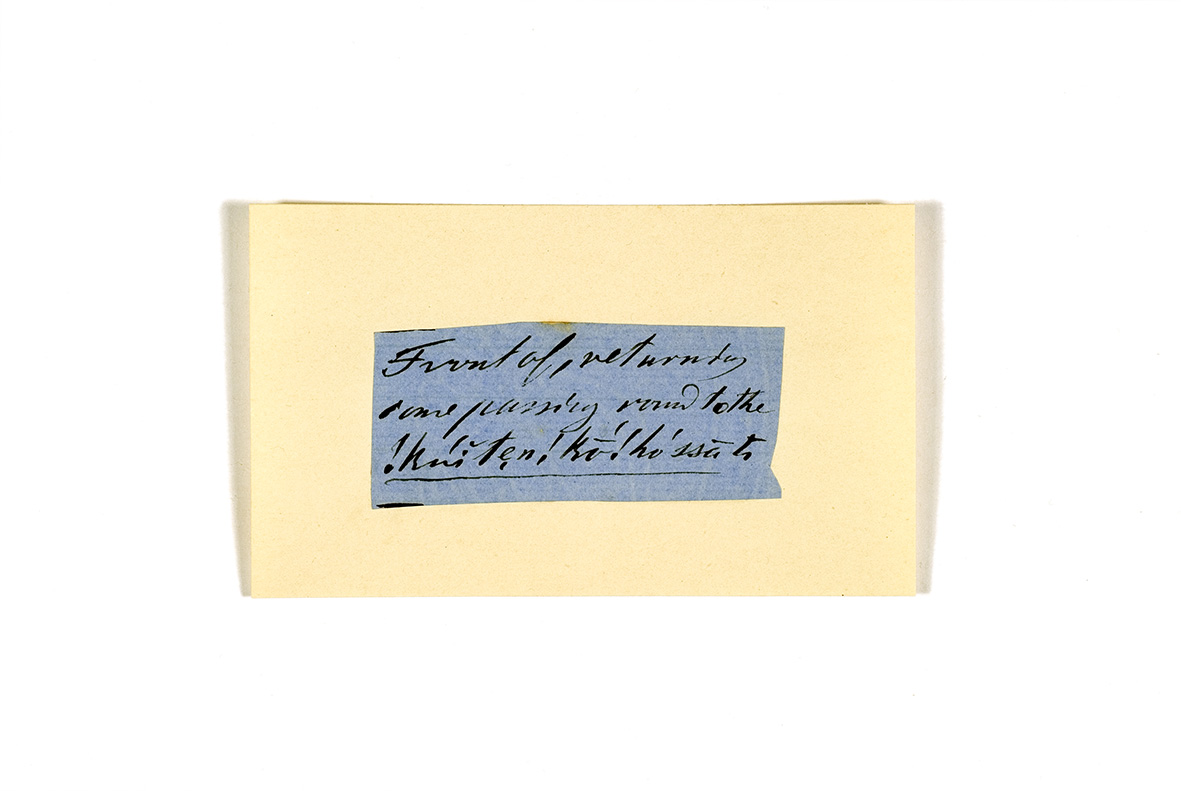 Front of, returning
some passing round to the
!kúïten! kṓ! hó ssā ti